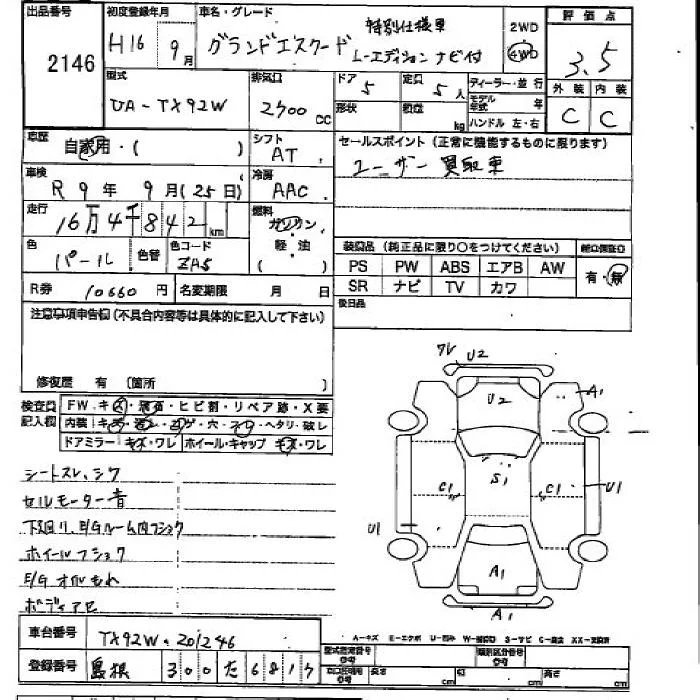 出品番号 初度登録年月 車名・グレード 評価点
2146 H16 9月 グランドエスクード 特別仕様車 2WD
L-エディション ナビ付 4WD 3.5
型式 排気口 ドア 定員 ディーラー・並行 外装 内装
UA-TX92W 2700 CC 5 5人 モデル年式 年 C C
形状 積量 kg ハンドル 左・右
車歴 自家用・( ) シフト AT セールスポイント (正常に機能するものに限ります)
ユーザー買取車
車検 R9年 9月(25日) 冷房 AAC
走行 16万4千842km 燃料 ガソリン・軽油
( )
色 パール 色替 色コード ZA5 装備品 (純正品に限り○をつけてください)
PS PW ABS エアB AW 有・無
SR ナビ TV カワ
R券 10660円 名変期限 月 日 後日品
注意事項申告欄 (不具合内容等は具体的に記入して下さい)
修復歴 有 (箇所 )
検査員記入欄 FW. キズ・飛石・ヒビ割・リペア跡・X要
内装・キズ・汚レ・コゲ・穴・スレ・ヘタリ・破レ
ドアミラー・キズ・ワレ ホイール・キャップ キズ・ワレ
ワレ U2
U2 A1
S1
C1 C1
U1 U1
A1
A1
シートスレ、シワ
セルモーター音
下廻り、E/Gルーム内フショク
ホイールフショク
E/Gオイルもれ
A-キズ E-エクボ U-凹み S-サビ
車台番号 TX92W-201246
型式指定番号 類別区分番号
登録番号 島根 300 た 6817
長さ cm 巾 cm 高さ cm